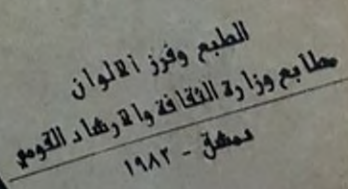 الطبع وفرز الألوان
مطابع وزارة الثقافة والارشاد القومي
دمشق - ١٩٨٢